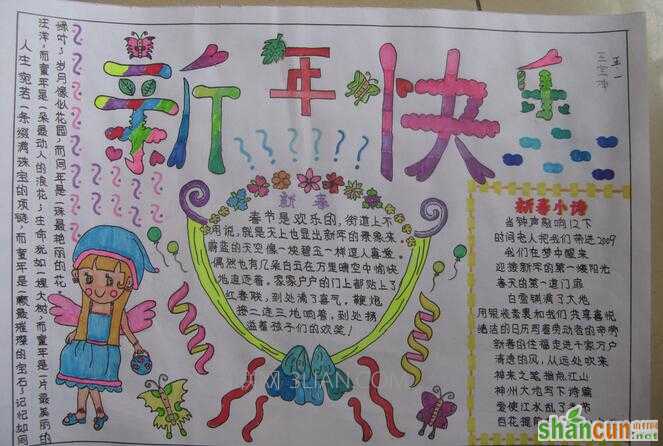 新年快乐
五一
新春
春节是欢乐的，街道上不
用说，就是天上也显出新年的景象来
蔚蓝的天空像一块碧玉一样逗人喜爱
偶然也有几朵白云在万里晴空中愉快
地追逐着，家家户户的门上都贴上了
红春联，到处满了喜气，鞭炮
接二连三地响着，到处扬
溢着孩子们的欢笑！
新春小诗
当钟声敲响12下
时间老人把我们带进2009
我们在梦中醒来
迎接新年的第一缕阳光
春天的第一道门扉
白雪铺满了大地
用银装素裹和我们共享喜悦
皓洁的日历周着劳动者的
新春的祝福走进千家万户
清逸的风，从远处吹来
神来之笔指点江山
神州大地写下诗篇
爱使江水乱了
百花提前
人生宛若一条缀满珠宝的项链，而童年是一颗最璀璨的宝石；记忆如同
汪洋，而童年是一朵最动人的浪花；生命犹如一棵大树，而童年是一片最美丽的
绿叶；岁月像似花园，而同年是一株最艳丽的花
三联网 3LIAN.COM
shancun
山村网
.net